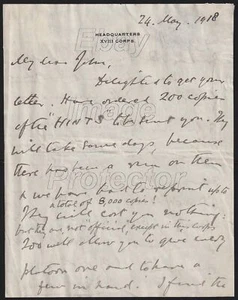 24. May. 1918
HEADQUARTERS
XVIII CORPS.
My dear John,
Delighted to get your
letter. Have ordered 200 copies
of the "HINTS" to be sent you. They
will take some days, because
there has been a run on them
& we have had to reprint up to
a total of 8,000 copies!
They will cost you nothing:
but they are not official, except in this Corps
200 will allow you to give every
platoon one and to have a
few in hand. I find the
eBay
Image
Protector